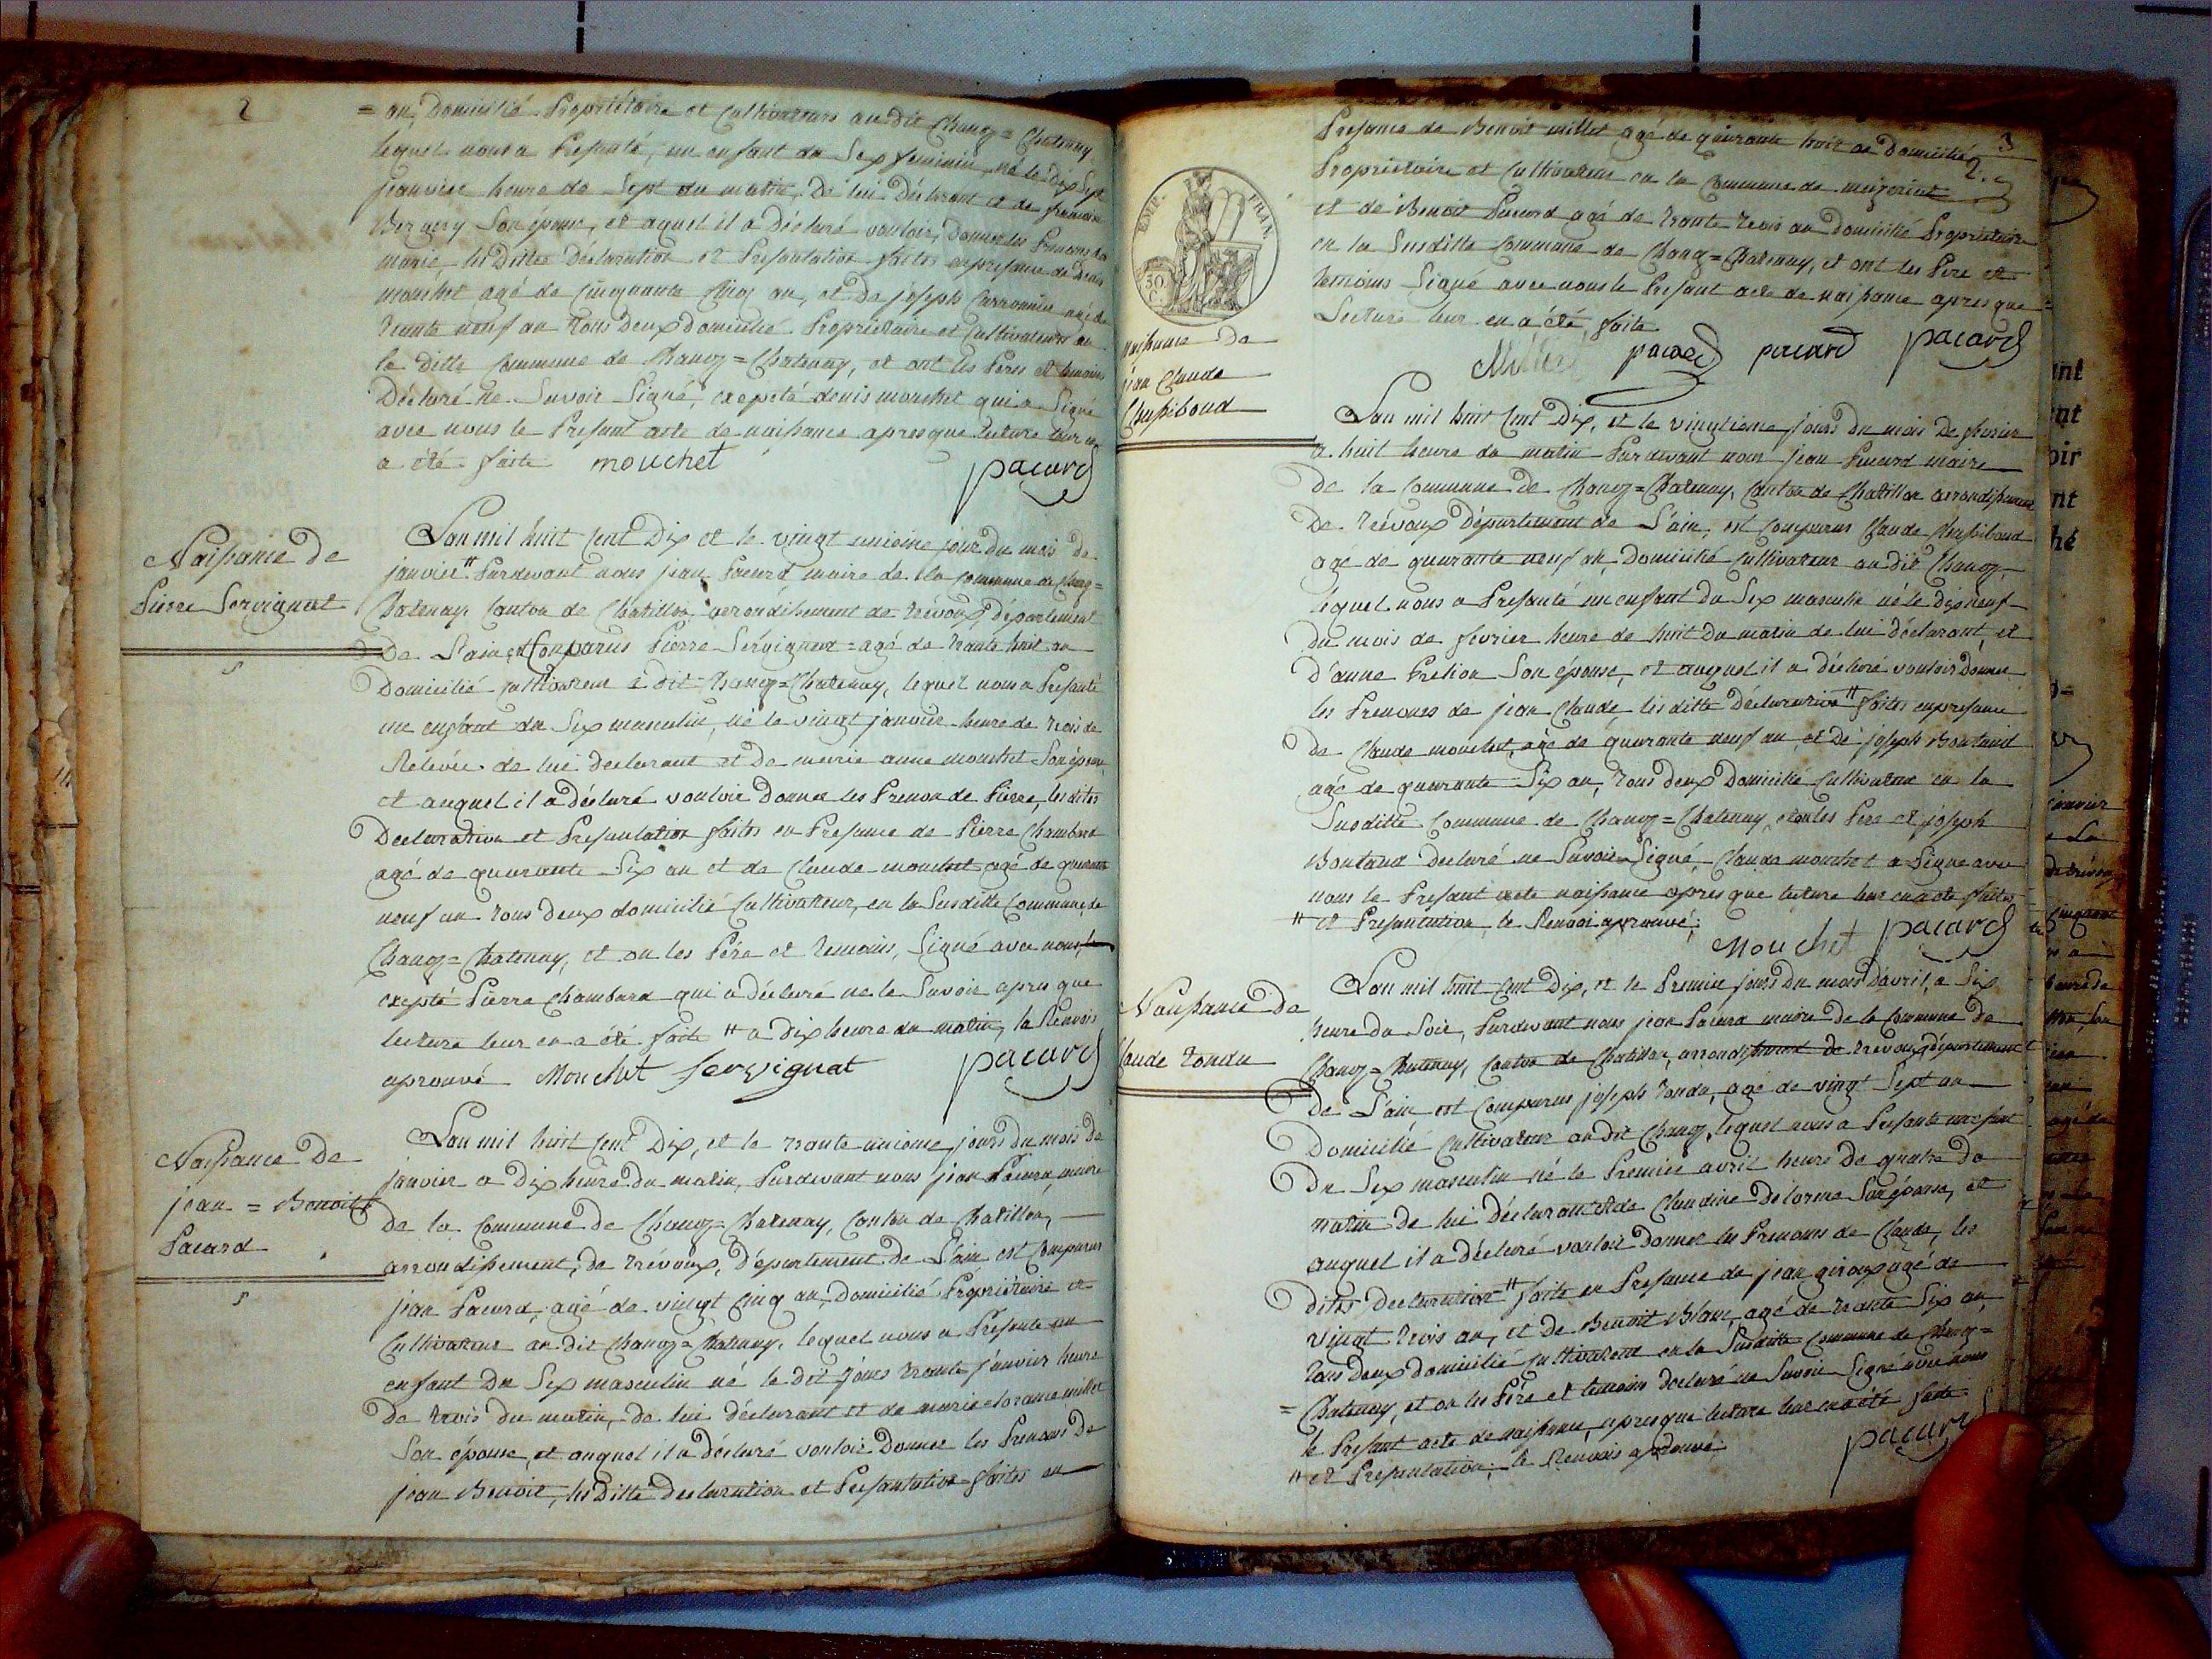 2
= an, Domicilié Propriétaire et Cultivateurs au dit Chanoz = Chatenay
lequel nous a Presanté, un enfant du Sexe feminin, né le dix Sept
janvier heure de Sept du matin, de lui Déclarant et de
Son épouse, et aquel il a déclaré vouloir, Donner les Prenoms de
marie, les Dittes Déclaration et Presantation faites en presance de denis
mouchet agé de Cinquante Cinq an, et de joseph agé de
trante neuf an tous deux domicilié Propriétaire et Cultivateurs en
la ditte Commune de Chanoz = Chatenay, et ont les Peres et temoins
Déclaré ne Savoir Signé, exepeté denis mouchet qui a Signé
avec nous le Presant acte de naissance apres que lecture leur en
a été faite mouchet pacard
Naissance de
Pierre Servignat
L'an mil huit Cent Dix et le vingt unieme jour du mois de
janvier # Pardevant nous jean Pacard maire de la Commune de Chanoz =
Chatenay Canton de Chatillon arrondissement de trévoux, département
De L'ain, est Comparus Pierre Servignat = agé de trante huit an
Domicilié Cultivateur a dit Chanoz = Chatenay, lequel nous a Presanté
un enfant du Sexe masculin, né le vingt janvier heure de trois de
Relevée de lui déclarant et de marie anne mouchet Son épouse,
et auquel il a déclaré vouloir donner les Prenon de Pierre, les dites
Declaration et Presantation faites en Presance de Pierre Chambard
agé de quarante Six an et de Claude mouchet agé de quarante
neuf an tous deux domicilié Cultivateur, en la Susditte Commune, de
Chanoz = Chatenay, et on les Pére et temoins, Signé avec nous, le
exepté Pierre Chambard qui a déclaré ne le Savoir apres que
lecture leur en a été faite # a dix heure du matin, le Renvois
aprouvé Mouchet Servignat pacard
Naissance De
jean = Benoit
Pacard
L'an mil huit Cent Dix, et le trante unieme jours du mois de
janvier a dix heure du matin, Pardevant nous jean Pacard, maire
de la Commune de Chanoz = Chatenay, Canton de Chatillon,
arrondissement, de trévoux, Département de L'ain est Comparus
jean Pacard, agé de vingt Cinq an, domicilié Propriétaire et
Cultivateur au dit Chanoz = Chatenay, lequel nous a Presanté un
enfant Du Sexe masculin né le dit jours trante janvier heure
De trois du matin, de lui déclarant et de marie millet
Son épouse, et auquel il a déclaré vouloir Donner les Prenoms de
jean Benoit, les Ditte declaration et Presantation = faites en
3
2.
Presance de Benoit millet agé de quarante huit an domicilié
Propriétaire et Cultivateur en la Commune de
et de Benoit Pacard agé de trante trois an domicilié Propriétaire
en la Susditte Commune de Chanoz = Chatenay, et ont les Pere et
temoins Signé avec nous le Presant acte de naissance apres que =
Lecture leur en a été faite
Millet pacard pacard pacard
EMP. FRAN.
30 C.
naissance De
jean Claude
Chassiboud
L'an mil huit Cent Dix, et le vingtieme jours du mois De fevrier
a huit heure du matin Pardevant nous jean Pacard maire
De la Commune de Chanoz = Chatenay, Canton de Chatillon arrondissement
De trévoux Département de L'ain, est Comparus Claude Chassiboud
agé de quarante neuf an, Domicilié Cultivateur au dit Chanoz,
lequel nous a Presanté un enfant Du Sexe masculin né le dix neuf
du mois de fevrier heure de huit du matin de lui déclarant, et
d'anne Son épouse, et auquel il a déclaré vouloir Donner
les Prenoms de jean Claude, les ditte Déclaration # faites en presance
de Claude mouchet, agé de quarante neuf an, et De joseph Boutaud
agé de quarante Six an, tous deux Domicilié Cultivateur en la
Susditte Commune de Chanoz = Chatenay, et on les Pere et joseph
Boutaud declaré ne Savoir Signé, Claude mouchet a Signé avec
nous le Presant acte naissance apres que lecture leur en a été faites
# et Presantation, le Renvoi aprouvé; Mouchet pacard
Naissance De
Claude tondu
L'an mil huit Cent Dix, et le Premier jours Du mois D'avril, a Six
heure du Soir, Pardevant nous jean Pacard maire de la Commune De
Chanoz = Chatenay, Canton de Chatillon, arrondissement de trévoux, département
De L'ain est Comparus joseph tondu, agé de vingt Sept an
Domicilié Cultivateur au dit Chanoz, lequel nous a Presanté un enfant
Du Sexe masculin né le Premier avril heure De quatre Du
matin de lui Déclarant et de Claudine Delorme Son épouse, et
auquel il a déclaré vouloir donner les Prenoms de Claude, les
dites Declaration # faite en Presance de jean giroux agé de
vingt trois an, et de Benoit Blanc, agé de trante Six an,
tous deux domicilié Cultivateur en la Susditte Commune de Chanoz =
= Chatenay, et on les Pére et temoins déclaré ne Savoir Signé avec nous
le Presant acte de naissance, apres que lecture leur en a été faite
# et Presantation; le Renvois aprouvé; pacard